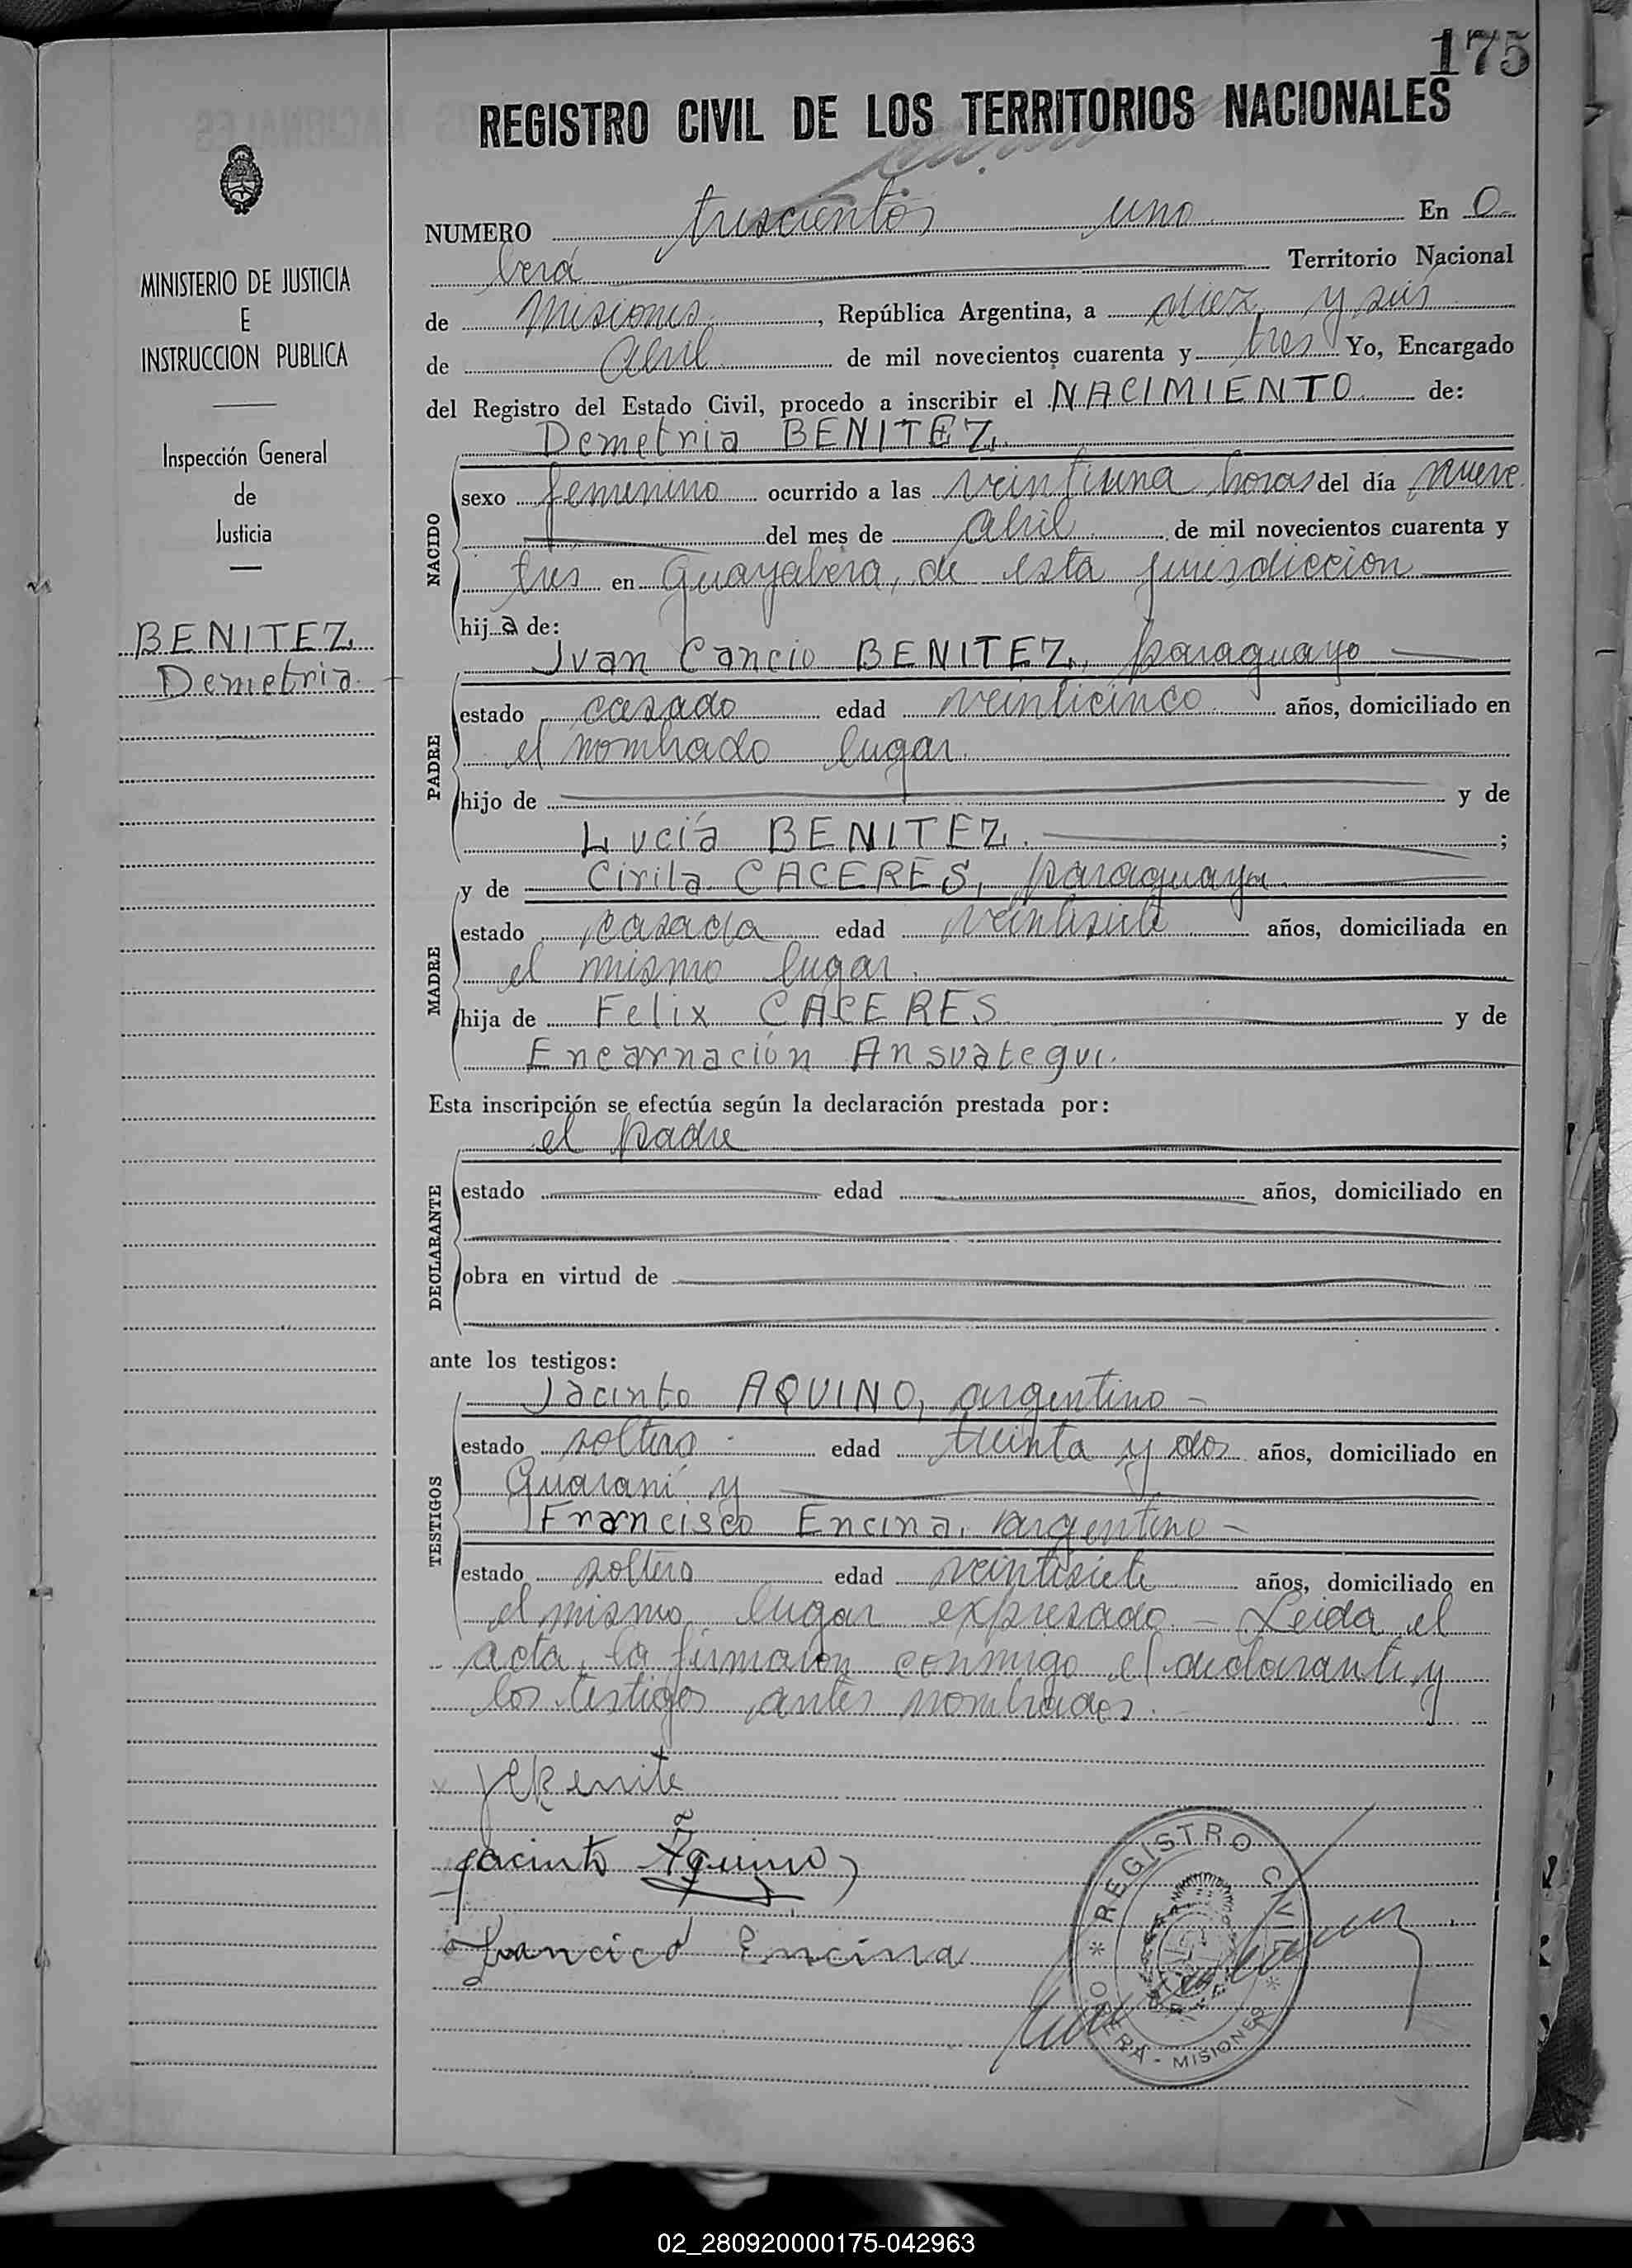 175
REGISTRO CIVIL DE LOS TERRITORIOS NACIONALES
MINISTERIO DE JUSTICIA
E
INSTRUCCION PUBLICA
Inspección General
de
Justicia
BENITEZ
Demetria
NUMERO trescientos uno En O
berá Territorio Nacional
de Misiones, República Argentina, a diez y seis
de Abril de mil novecientos cuarenta y tres Yo, Encargado
del Registro del Estado Civil, procedo a inscribir el NACIMIENTO de:
Demetria BENITEZ,
NACIDO
sexo femenino ocurrido a las veintiuna horas del día nueve
del mes de Abril de mil novecientos cuarenta y
tres en Guayabera, de esta jurisdiccion
hija de:
Juan Cancio BENITEZ, paraguayo
PADRE
estado casado edad veinticinco años, domiciliado en
el nombrado lugar.
hijo de y de
Lucía BENITEZ. ;
y de Cirila CACERES, paraguaya
MADRE
estado casada edad veintisiete años, domiciliada en
el mismo lugar.
hija de Felix CACERES y de
Encarnación Ansuategui.
Esta inscripción se efectúa según la declaración prestada por:
el padre
DECLARANTE
estado edad años, domiciliado en
obra en virtud de
ante los testigos:
Jacinto AQUINO, argentino -
TESTIGOS
estado soltero edad treinta y dos años, domiciliado en
Guaraní y
Francisco Encina, argentino -
estado soltero edad veintisiete años, domiciliado en
el mismo lugar expresado - Leida el
acta, la firmaron conmigo el declarante y
los testigos antes nombrados.
Jacinto Aquino
Francico Encina
REGISTRO CIVIL
OBERÁ - MISIONES
02_280920000175-042963